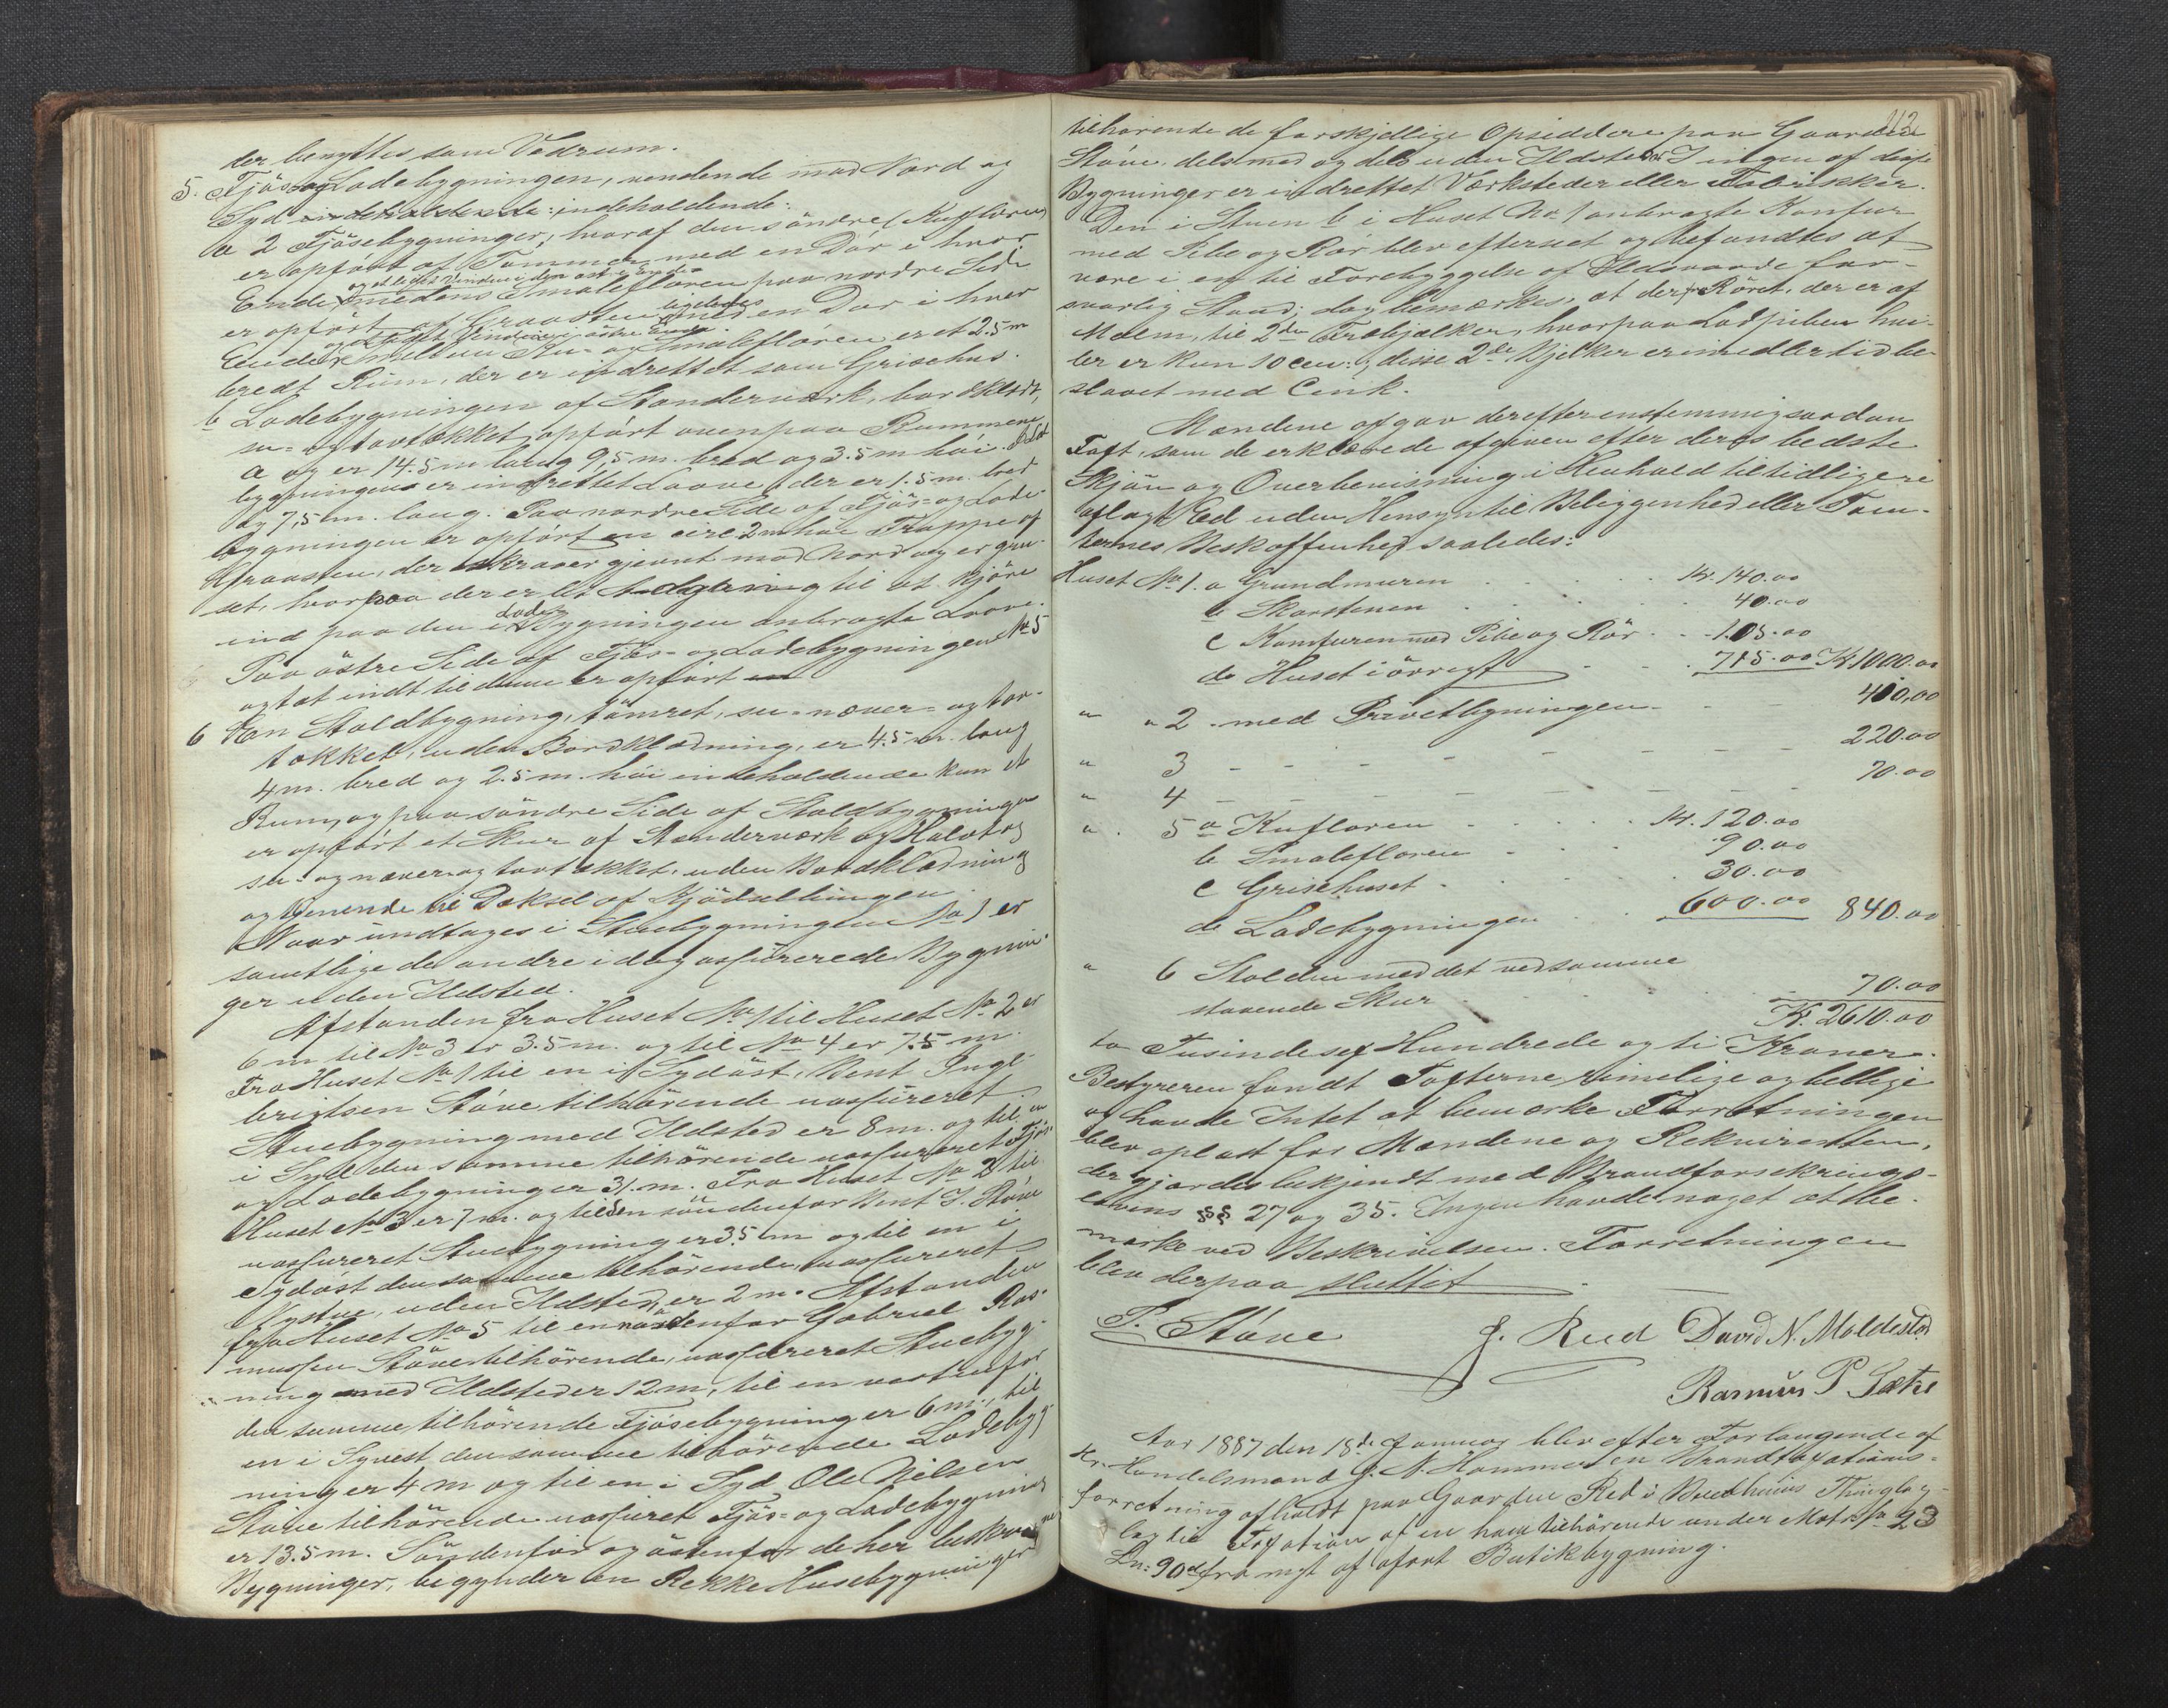 der benyttes som Vedrum.
5. Fjös- og Ladebygningen, vendende mod Nord og
Syd indeholdende: indeholdende:
a 2 Fjösebygninger, hvoraf den söndre (Kufloren)
er opfört af Tömmer med en Dör i hver
og et liget Vindue i den östre Ende
Ende, medens Smalefloren paa nordre Side
ligeledes
er opfört af Graasten med en Dör i hver
og et liget Vindue i östre Ende.
Ende. Mellem Ku- og Smalefloren er et 2.5 m
bredt Rum, der er indrettet som Grisehus.
b Ladebygningen af Standerværk, bordklædt,
su- og tavtækket, opfört ovenpaa Rummene
a og er 14.5 m lang 9,5 m. bred og 3.5 m höi. I Lade
bygningen er indrettet Laave, der er 1.5 m. bred
og 7,5 m. lang. Paa nordre Side af Fjös- og Lade-
bygningen er opfört en circ 2 m höi Trappe af
Graasten, der skraaer gjevnt mod Nord og er gru-
set, hvorpaa der er let Adgang til at kjöre
Lade
ind paa den i Bygningen anbragte Laave.
Paa östre Side af Fjös- og Ladebygningen № 5
og tæt indt til denne er opfört en
6 En Staldbygning, tömret, su- næver- og tor-
tækket, uden Bordklædning, er 4.5 m. lang
4 m. bred og 2.5 m. höi indeholdende kun et
Rum, og paa söndre Side af Staldbygningen
er opfört et Skur af Standerværk og Halvtag
su- og næver- og tortækket, uden Bordklædning
og tjenende til Dæksel af Gjödseldyngen.
Naar undtages i Stuebygningen № 1 er
samtlige de andre i dag assurerede Bygnin-
ger uden Ildsted.
Afstanden fra Huset № 1 til Huset № 2 er
6 m til № 3 er 3.5 m. og til № 4 er 7.5 m.
Fra Huset № 1 til en i Sydöst, Bent Ingl-
brigtsen Stöve tilhörende uassureret
Stuebygning med Ildsted er 8 m. og til en
i Syd den samme tilhörende uassureret Fjös-
og Ladebygning er 31. m. Fra Huset № 2 til
Huset № 3 er 7 m. og til en söndenfor Bent I. Stöve
uassureret Stuebygning er 3.5 m og til en i
Sydöst den samme tilhörende, uassureret
Nystue, uden Ildsted, er 2 m. Afstanden
fra Huset № 5 til en nordenfor Gabriel Ras-
mussen Stöve tilhörende, uassureret Stuebyg-
ning med Ildsted er 12 m, til en vestenfor
den samme tilhörende Fjösebygning er 6 m., til
en i Syvest den samme tilhörende Ladebyg-
ning er 4 m og til en i Syd Ole Nilsen
Stöve tilhörende uassureret Fjös- og Ladebygning
er 13.5 m. Söndenfor og östenfor de her beskrevne
Bygninger, begynder en Række Husebygninger
112
tilhörende de forskjellige Opsiddere paa Gaarden
Stöve, dels med og dels uden Ildsteder. I ingen af disse
Bygninger er indrettet Værksteder eller Fabrikker.
Den i Stuen b i Huset № 1 anbragte Komfur
med Pibe og Rör blev efterseet og befandtes at
være i en til Forebyggelse af Ildsvaade for-
svarlig Stand; dog bemærkes, at der fra Röret, der er af
Malm, til 2de Træbjælker, hvorpaa Ladpiben hvi-
ler er kun 10 ctm.; disse 2de Bjelker er imidlertid be-
slaaet med Cink.
Mændene afgav derefter enstemmig saadan
Taxt, som de erklærede afgiven efter deres bedste
Skjön og Overbevisning i Henhold til tidligere
aflagt Ed uden Hensyn til Beliggenhed eller Tom-
ternes Beskaffenhed saaledes:
Huset № 1. a Grundmuren . . . . Kr. 140.00
b Skorstenen . . . . 40.00
c Komfuren med Pibe og Rör . . 105.00
d Huset iövrigt . . . 715.00 Kr. 1000.00
" " 2 med Privetbygningen - - - 410,00
" 3 - - - - - - - - 220.00
" 4 - - - - - - - - 70.00
" . 5 a Kufloren . . . . . Kr. 120.00
b Smalefloren . . . . 90.00
c Grisehuset . . . . 30.00
d Ladebygningen . . . 600.00 840.00
" 6 Stalden med det ved samme
staaende Skur . . . . . . . 70.00
Kr. 2610.00
to Tusinde sex Hundrede og ti Kroner.
Bestyreren fandt Taxterne rimelige og billige
og havde Intet at bemærke. Forretningen
blev oplæst for Mændene og Rekvirenten,
der gjordes bekjendt med Brandforsikrings-
lovens §§ 27 og 35. Ingen havde noget at be-
mærke ved Beskrivelsen. Forretningen
blev derpaa sluttet.
P. Stöve J. Rud David N. Moldestad
Rasmus P Sætre
Aar 1887 den 18de Januar blev efter Forlangende af
Hr. Handelsmand J. N. Hammer en Brandtaxations-
forretning afholdt paa Gaarden Red i Thinglag-
lag til Taxation af en ham tilhörende under Mat № 23
Ln: 90 d fra nyt af opfört Butikbygning.